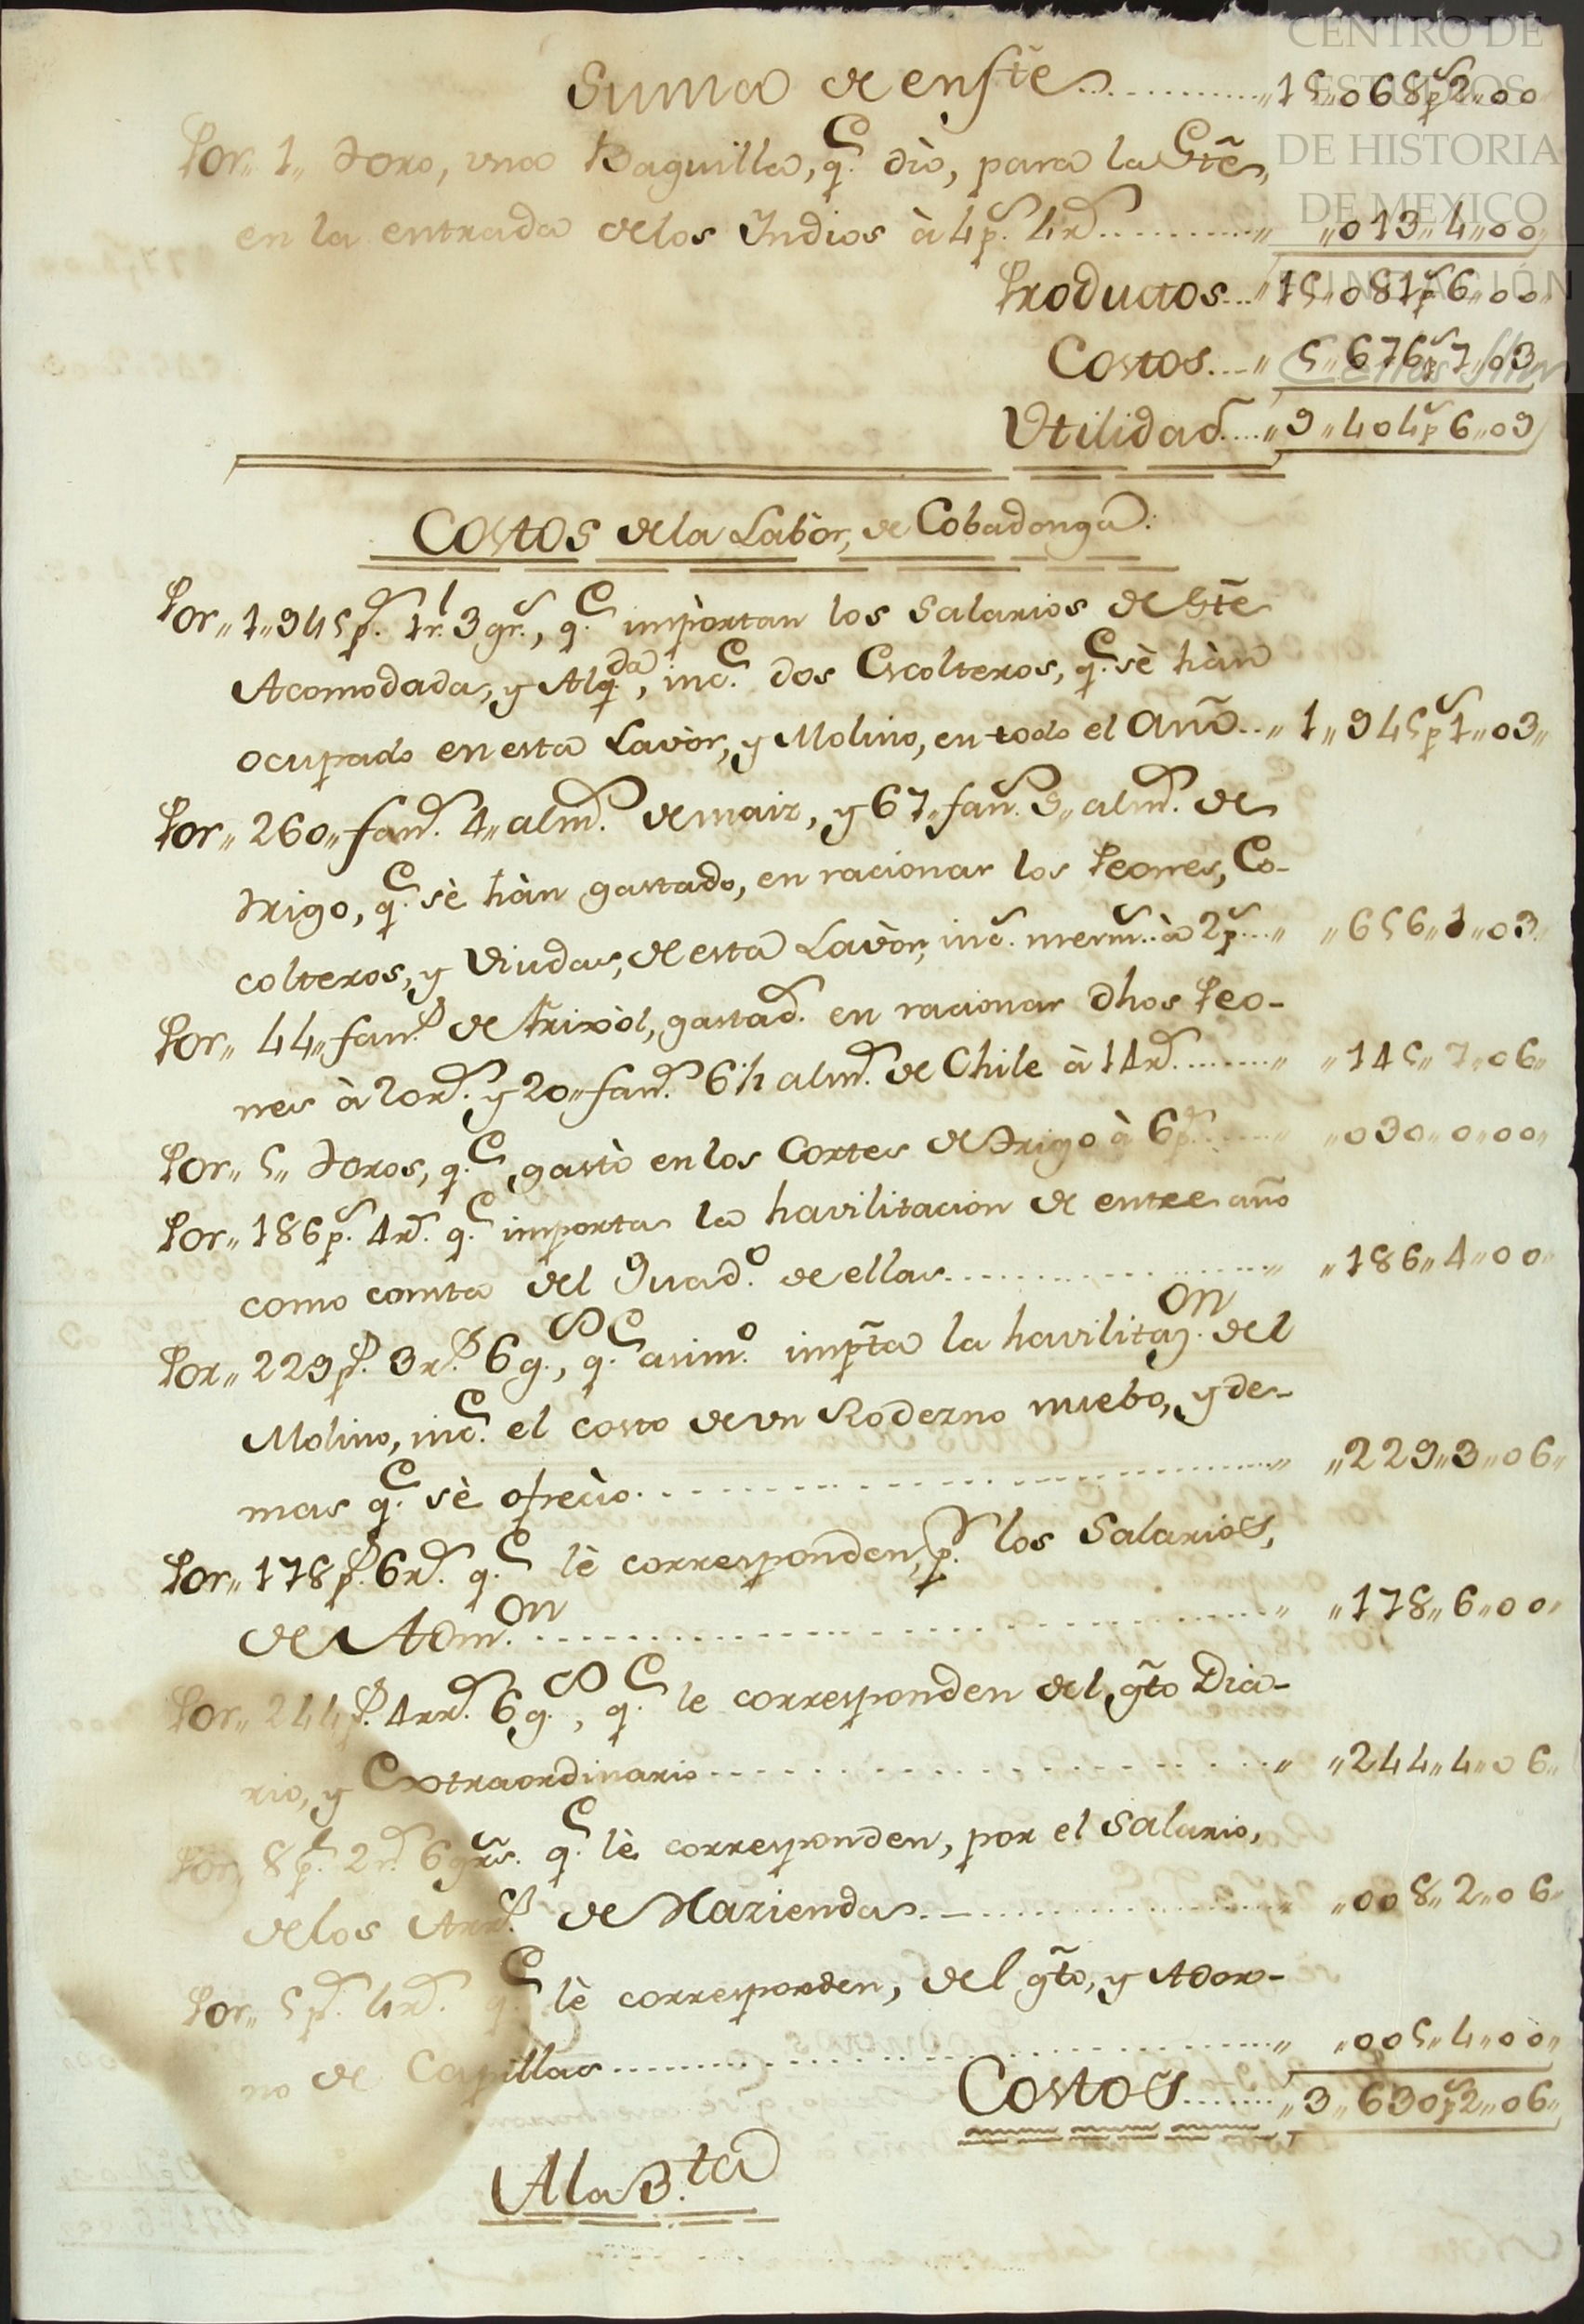 Suma de enfte............,, 15,,068ps2,,00
Por,, 1,, toro, una Baquilla, q.e diò, para la Gte,
en la entrada de los Yndios à 4p.s 4rs...........,, ,,013,,4,,00,,
Productos...,, 15,,081ps6,,00,,
Costos....,, 5,,676ps7,,03
Utilidad....,, 9,,404ps6,,09
Costos de la Labòr, de Cobadonga.
Por,, 1,,945p.s 1r.l 3gr.s, q.e impòrtan los Salarios de Gte
Acomodada, y Alq.da, inc.e dos Escolteros, q.e sè hàn
ocupado en esta Lavòr, y Molino, en todo el Año...,, 1,,945ps1,,03,,
Por,, 260,, fan.s 4,, alm.s de maiz, y 67,, fan.s 9,, alm.s de
trigo, q.e sè hàn gastado, en racionar los Peones, Es-
colteros, y Viudas, de esta Lavòr, inc.e merm.s à 2p.s...,, ,,656,,1,,03,,
Por,, 44,, fan.s de frixòl, gastad.s en racionar dhos Peo-
nes à 20r.s y 20,, fan.s 6½ alm.s de Chile à 14r.s........,, ,,145,,7,,06,,
Por,, 5,, toros, q.e gastò en los Cortes de trigo à 6p.s......,, ,,030,,0,,00,,
Por,, 186p.s 4r.s q.e importa la havilitacion de entre año
como consta del Quad.o de ellas....................,, ,,186,,4,,00,,
Por,, 229p.s 3r.s 6g.s, q.e asim.o impta la havilitaz.on del
Molino, inc.e el costo de un Rodezno nuebo, y de-
mas q.e sè ofreciò....................,, ,,229,,3,,06,,
Por,, 178p.s 6r.s q.e lè corresponden, p.r los Salarios,
de Adm.on....................,, ,,178,,6,,00,,
Por,, 244p.s 4rr.s 6g.s, q.e le corresponden del gto Dia-
rio, y Extraordinario....................,, ,,244,,4,,06,,
Por,, 8p.s 2r.s 6grs. q.e lè corresponden, por el Salario,
de los Arr.s de Hazienda....................,, ,,008,,2,,06,,
Por,, 5p.s 4r.s q.e lè corresponden, del gto, y Ador-
no de Capillas....................,, ,,005,,4,,00,,
Costos........,, 3,,630ps2,,06,,
A la B.ta
CENTRO DE
ESTUDIOS
DE HISTORIA
DE MEXICO
FUNDACIÓN
Carlos Slim